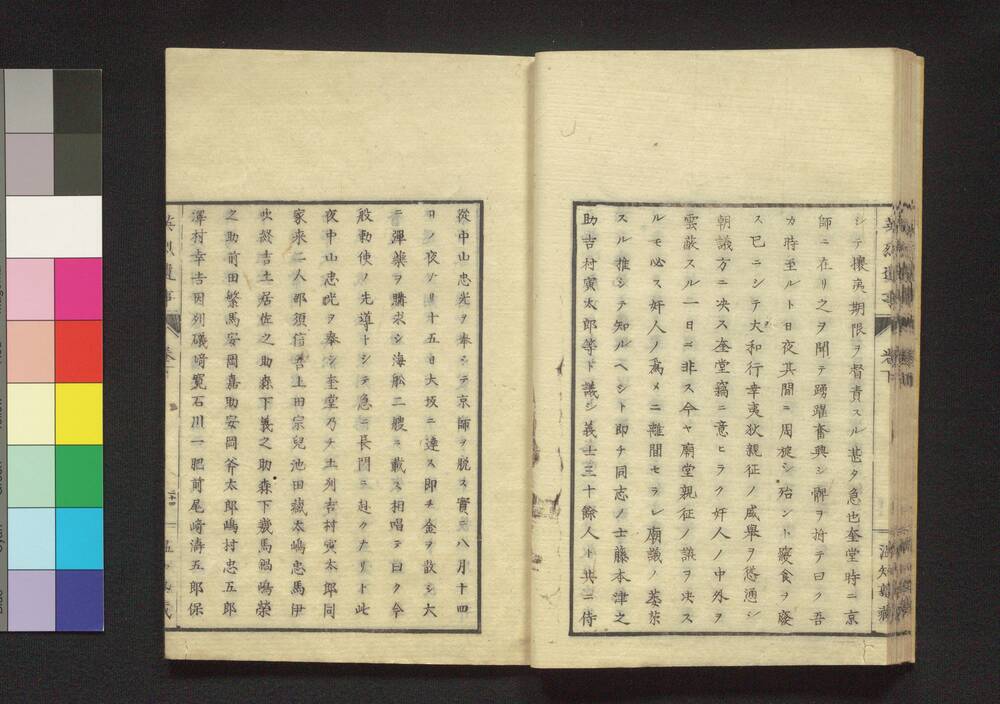 シテ攘夷期限ヲ督責スル甚タ急也奎堂時ニ京
師ニ在リ之ヲ聞テ踴躍奮興シ髀ヲ拊テ曰ク吾
カ時至ルト日夜其間ニ周旋シ殆ント寢食ヲ廢
ス已ニシテ大和行幸夷狄親征ノ盛舉ヲ慫通シ
朝議方ニ决ス奎堂竊ニ意ヒラク奸人ノ中外ヲ
雲蔽スル一日ニ非ス今ヤ廟堂親征ノ議ヲ决ス
ルモ必ス奸人ノ爲メニ離間セラレ廟議ノ
スル推シテ知ルヘシト即チ同志ノ士藤本津之
助吉村寅太郎等ト議シ義士三十餘人ト共ニ侍
從中山忠光ヲ奉シテ京師ヲ脱ス實ニ八月十四
日ノ夜ナリ十五日大坂ニ達ス即チ金ヲ散シ大
ニ彈藥ヲ購求シ海舩二艘ニ載ス相唱テ曰ク今
般勅使ノ先導トシテ急ニ長門ニ赴クナリト此
夜中山忠光ヲ奉シ奎堂乃チ土列吉村寅太郎同
家来二人那須信吾上田宗兒池田藏太嶋忠馬伊
吹終吉土居佐之助森下義之助森下幾馬鍋嶋榮
之助前田繁馬安岡嘉助安岡斧太郎嶋村忠五郎
澤村幸吉因列礒﨑寬石川一肥前尾﨑濤五郎保